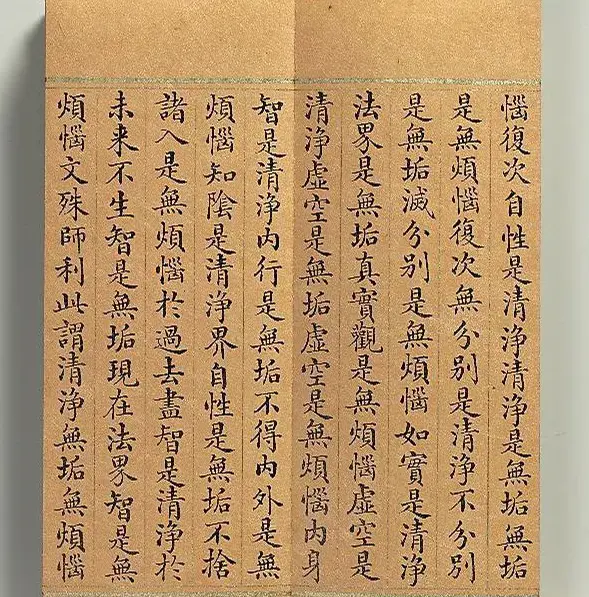 惱復次自性是清淨清淨是無垢無垢
是無煩惱復次無分別是清淨不分別
是無垢滅分別是無煩惱如實是清淨
法界是無垢真實觀是無煩惱虛空是
清淨虛空是無垢虛空是無煩惱內身
智是清淨內行是無垢不得內外是無
煩惱知陰是清淨界自性是無垢不捨
諸入是無煩惱於過去盡智是清淨於
未来不生智是無垢現在法界智是無
煩惱文殊師利此謂清淨無垢無煩惱